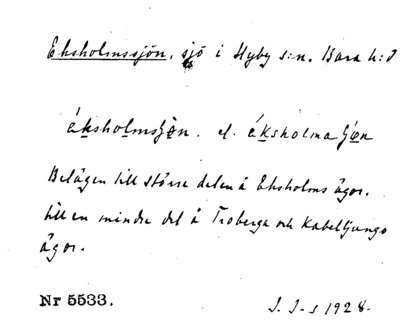 Eksholmssjön, sjö i Hyby s:n. Bara h:d
éksholmsʃø̀n. el. éksholma ʃø̀n
Belägen till större delen å Eksholms ägor.
till en mindre del å Troberga och Kabelljungs
ägor.
Nr 5533.
J. J-s 1928.